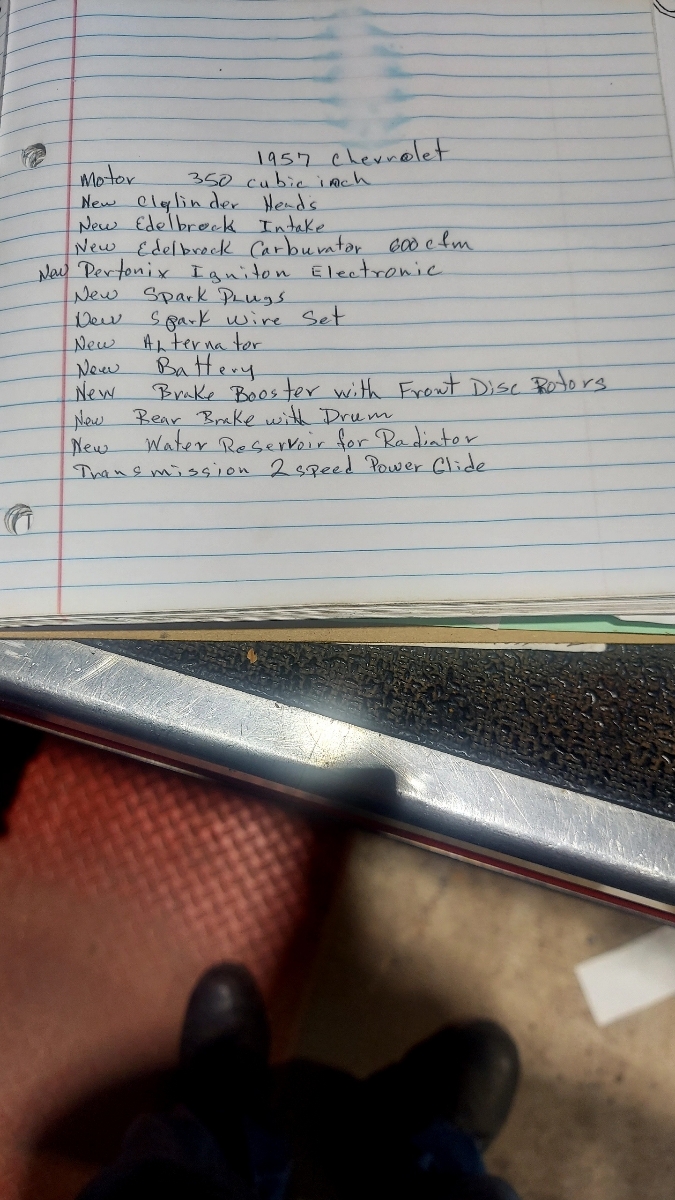 1957 Chevrolet
Motor 350 cubic inch
New Clylinder Heads
New Edelbrock Intake
New Edelbrock Carburator 600 cfm
New Pertonix Igniton Electronic
New Spark Plugs
New Spark wire Set
New Alternator
New Battery
New Brake Booster with Front Disc Rotors
New Rear Brake with Drum
New Water Reservoir for Radiator
Transmission 2 speed Power Glide